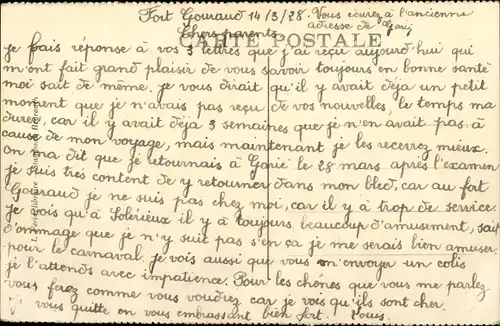 Fort Gouraud 14/3/28. Vous écrirez à l'ancienne
adresse de
Chers parents
CARTE POSTALE
je frais reponse à vos 3 lettres que j'ai reçu aujourd'hui qui
m'ont fait grand plaisir de vous savoir toujours en bonne santé
moi sait de même. je vous dirait qu'il y avait déja un petit
moment que je n'avais pas reçu de vos nouvelles, le temps ma
durer, car il y avait déja 3 semaines que je n'en avait pas à
cause de mon voyage, mais maintenant je les recevrez mieux.
On ma dit que je retournais à le 28 mars après l'examen
je suis très content de y retourner dans mon bled, car au fort
Gouraud je ne suis pas chez moi, car il y à trop de service.
je vois qu'a Solérieux il y à toujours beaucoup d'amusement, sait
d'ommage que je n'y suit pas s'en ça je me serais bien amuser
pour le carnaval. je vois aussi que vous m'envoyer un colis
je l'attends avec impatience. Pour les chénes que vous me parlez
vous ferez comme vous voudrez car je vois qu'ils sont cher.
je vous quitte en vous embrassant bien fort. Louis.